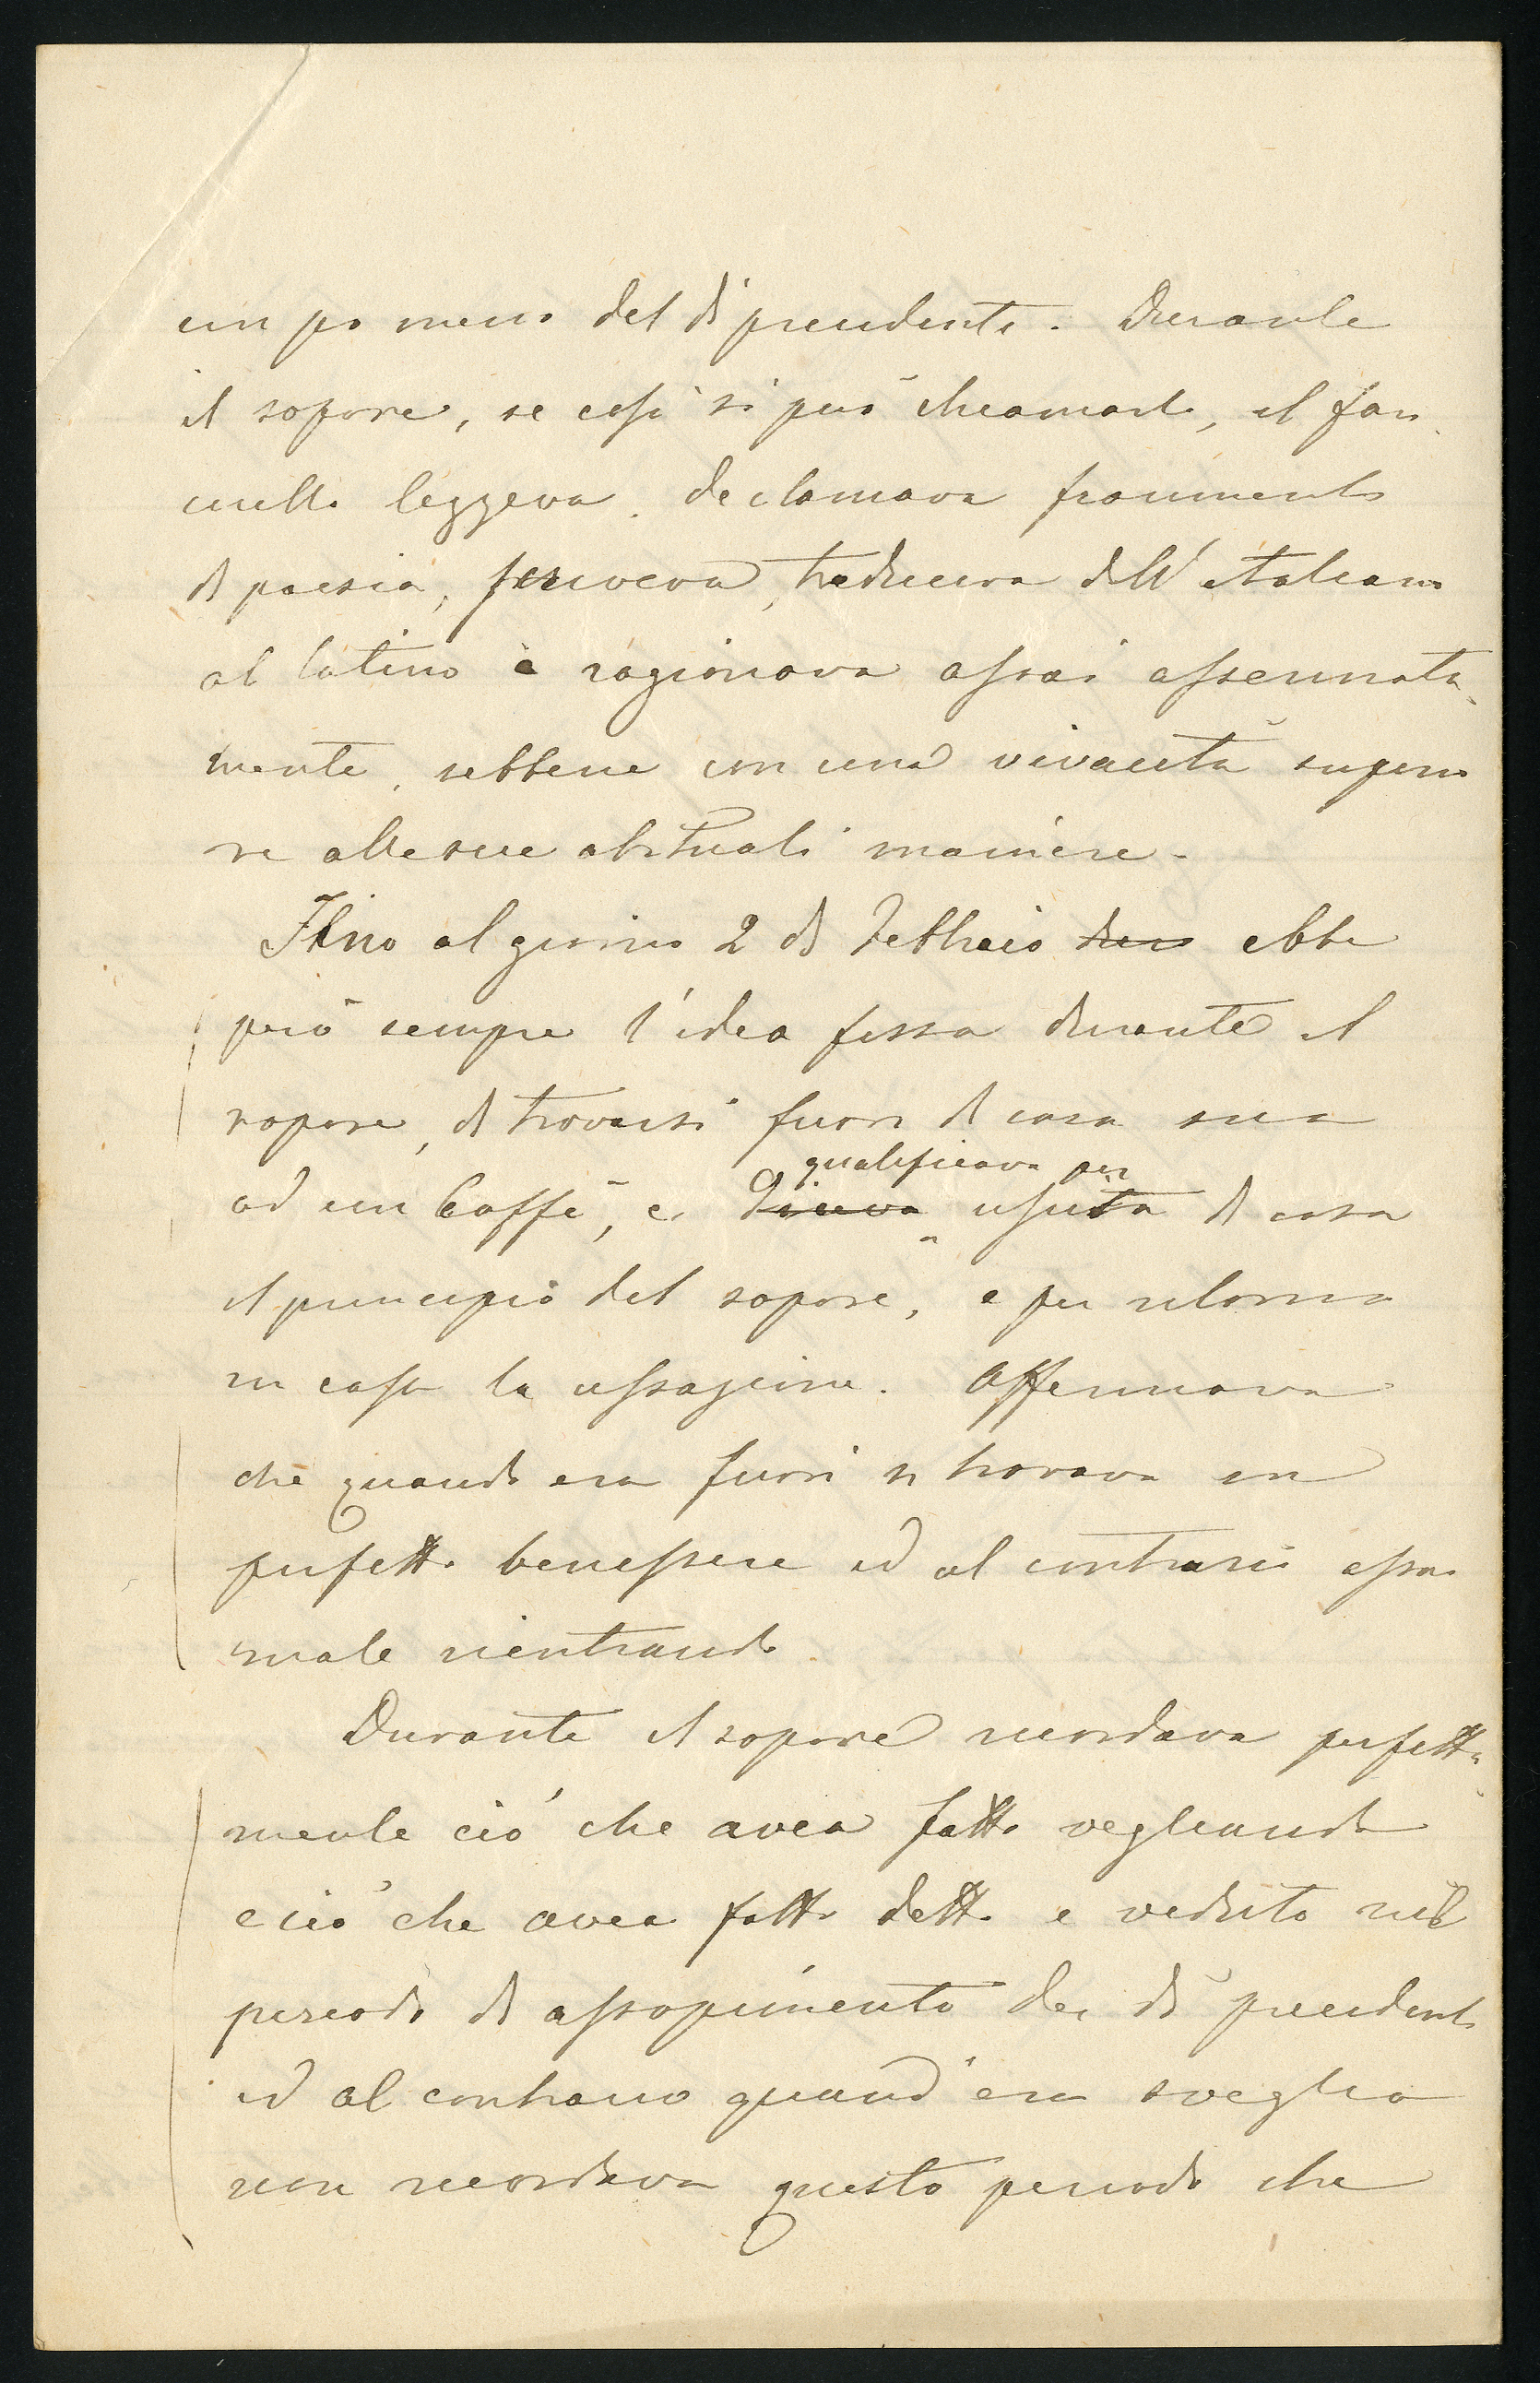 un po meno del dì precedente. Durante
il sopore, se così si può chiamarlo, il fan
ciullo leggeva, declamava frammenti
di poesia, scriveva, traduceva dall'italiano
al latino e ragionava assai assennata
mente, sebbene con una vivacità superio
re alle sue abituali maniere.
Fino al giorno 2 di Febbraio ebbe
però sempre l'idea fissa durante il
sopore, di trovarsi fuori di casa sua
ad un Caffè, e diceva qualificava per uscita di casa
il principio del sopore, e per ritorno
in casa la cessazione. Affermava
che quando era fuori si trovava in
perfetto benessere ed al contrario assai
male rientrando.
Durante il sopore ricordava perfetta
mente ciò che avea fatto vegliando
e ciò che avea fatto detto e veduto nel
periodo di assopimento dei dì precedenti
ed al contrario quand'era sveglio
non ricordava questo periodo che